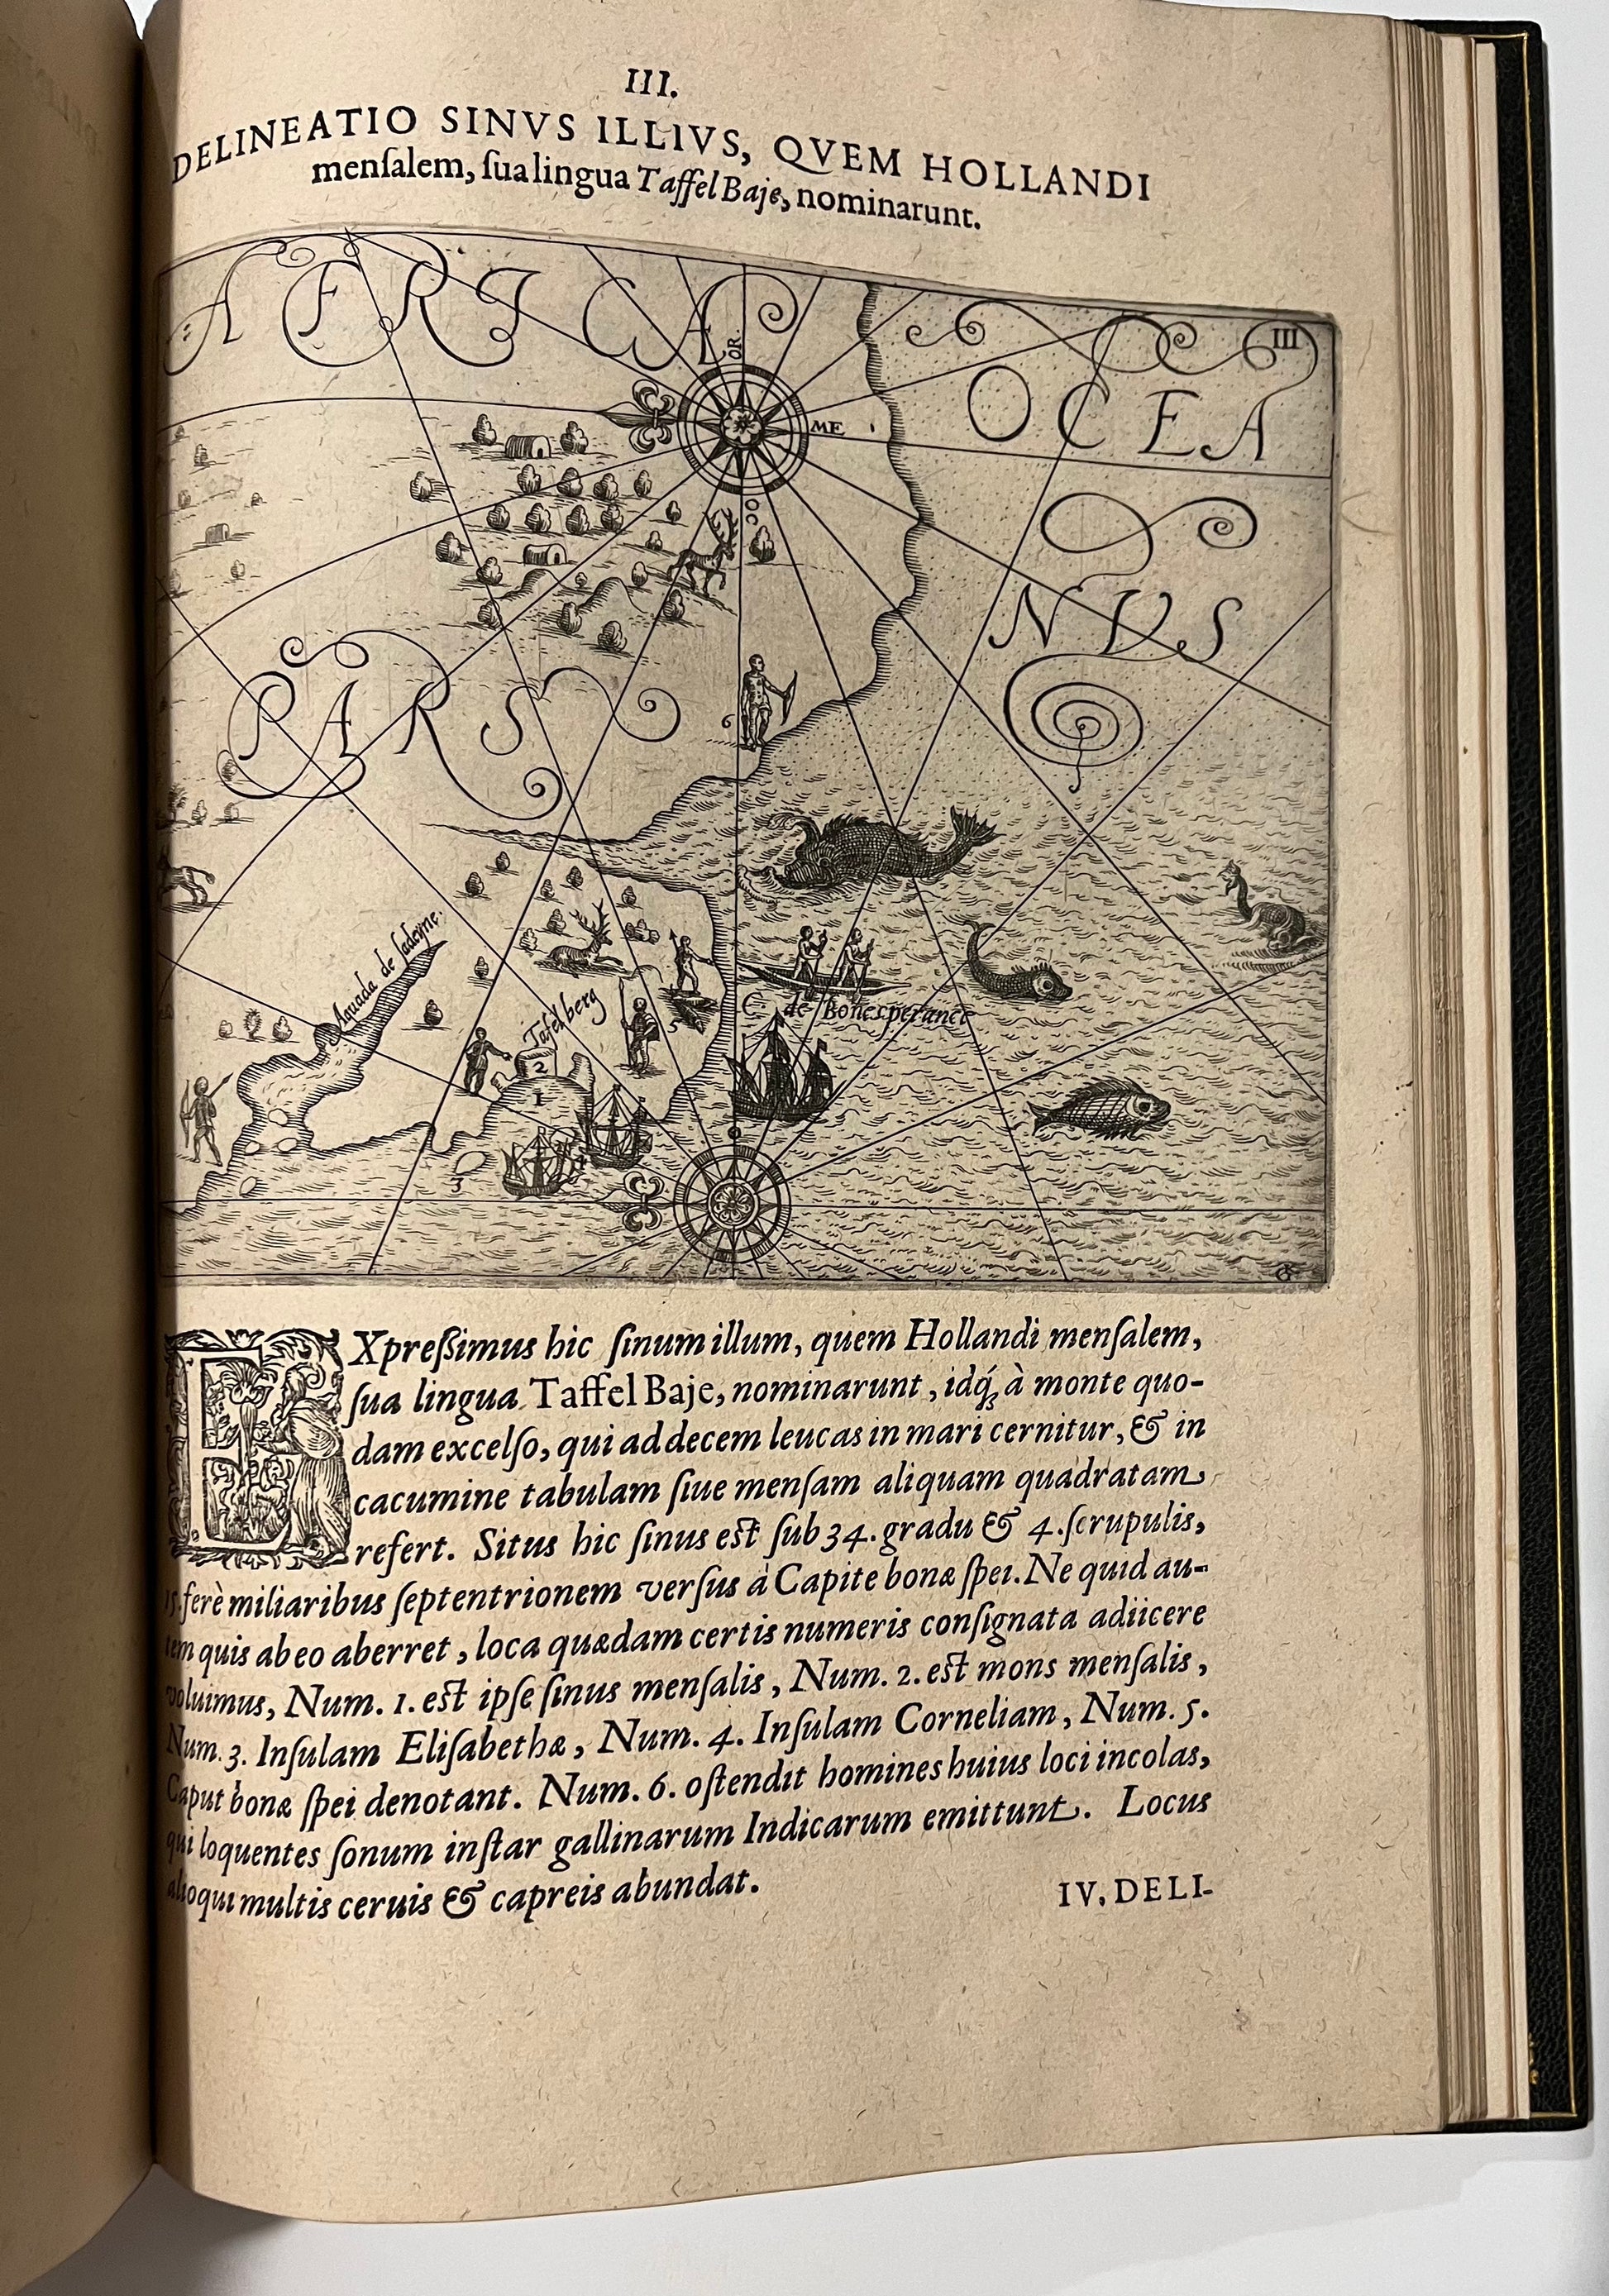 III.
DELINEATIO SINVS ILLIVS, QVEM HOLLANDI
menſalem, ſua lingua Taffel Baje, nominarunt.
AFRICA
OR.
III
OCEA
ME
OC
NVS
6
PARS
Aguada de Sadeyne.
Tafelberg
C de Bonesperance
5
2
1
4
3
EXpreſſimus hic ſinum illum, quem Hollandi menſalem,
ſua lingua Taffel Baje, nominarunt, idq́; à monte quo-
dam excelſo, qui ad decem leucas in mari cernitur, & in
cacumine tabulam ſiue menſam aliquam quadratam
refert. Situs hic ſinus est ſub 34. gradu & 4. ſcrupulis,
15. ferè miliaribus ſeptentrionem verſus à Capite bonæ ſpei. Ne quid au-
tem quis ab eo aberret, loca quædam certis numeris conſignata adiicere
voluimus, Num. 1. est ipſe ſinus menſalis, Num. 2. est mons menſalis,
Num. 3. Inſulam Eliſabethæ, Num. 4. Inſulam Corneliam, Num. 5.
Caput bonæ ſpei denotant. Num. 6. oſtendit homines huius loci incolas,
qui loquentes ſonum inſtar gallinarum Indicarum emittunt. Locus
alioqui multis ceruis & capreis abundat.
IV. DELI-